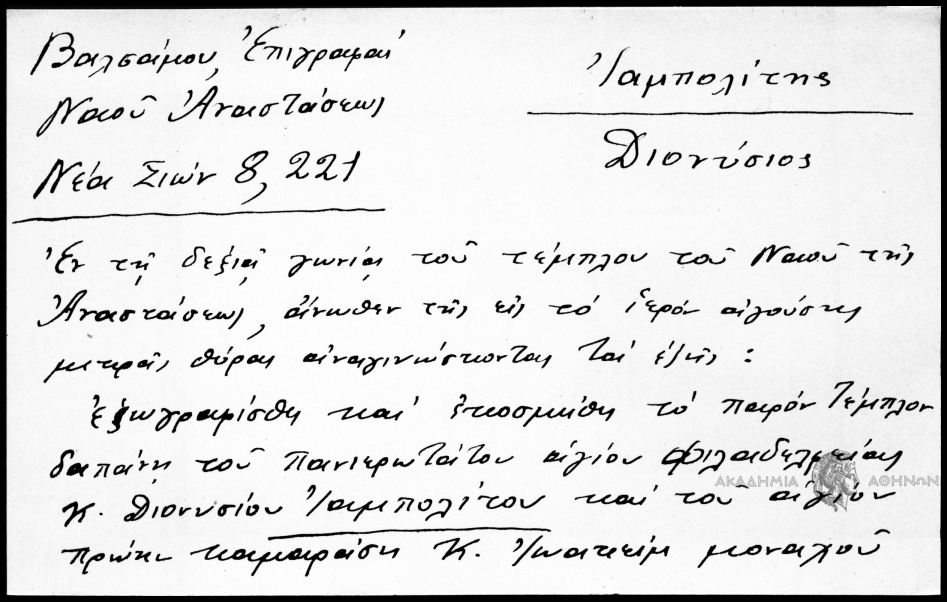 Βαλσάμου, Ἐπιγραφαί
Ναοῦ Ἀναστάσεως
Νέα Σιών 8, 221
Ἰαμπολίτης
Διονύσιος
Ἐν τῇ δεξιᾷ γωνίᾳ τοῦ τέμπλου τοῦ Ναοῦ τῆς
Ἀναστάσεως, ἄνωθεν τῆς εἰς τὸ ἱερόν ἀγούσης
μικρᾶς θύρας ἀναγινώσκονται τά ἑξῆς:
Ἐζωγραφίσθη καί ἐκοσμήθη τό παρόν Τέμπλον
δαπάνῃ τοῦ πανιερωτάτου ἁγίου Φιλαδελφείας
Κ. Διονυσίου Ἰαμπολίτου καί τοῦ ἁγίου
πρώην καμαράση Κ. Ἰωακείμ μοναχοῦ
ΑΚΑΔΗΜΙΑ ΑΘΗΝΩΝ